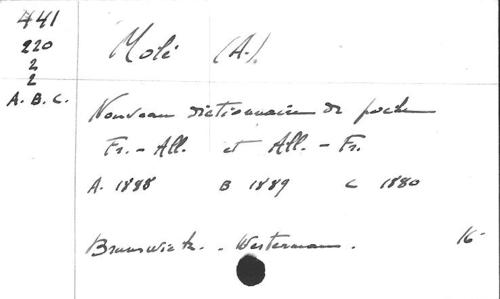 441
220
2
2
A. B. C.
Molé (A.).
Nouveau dictionnaire de poche
Fr. - All. et All. - Fr.
A. 1888 B 1889 C 1880
Brunswick. . Westermann . 16